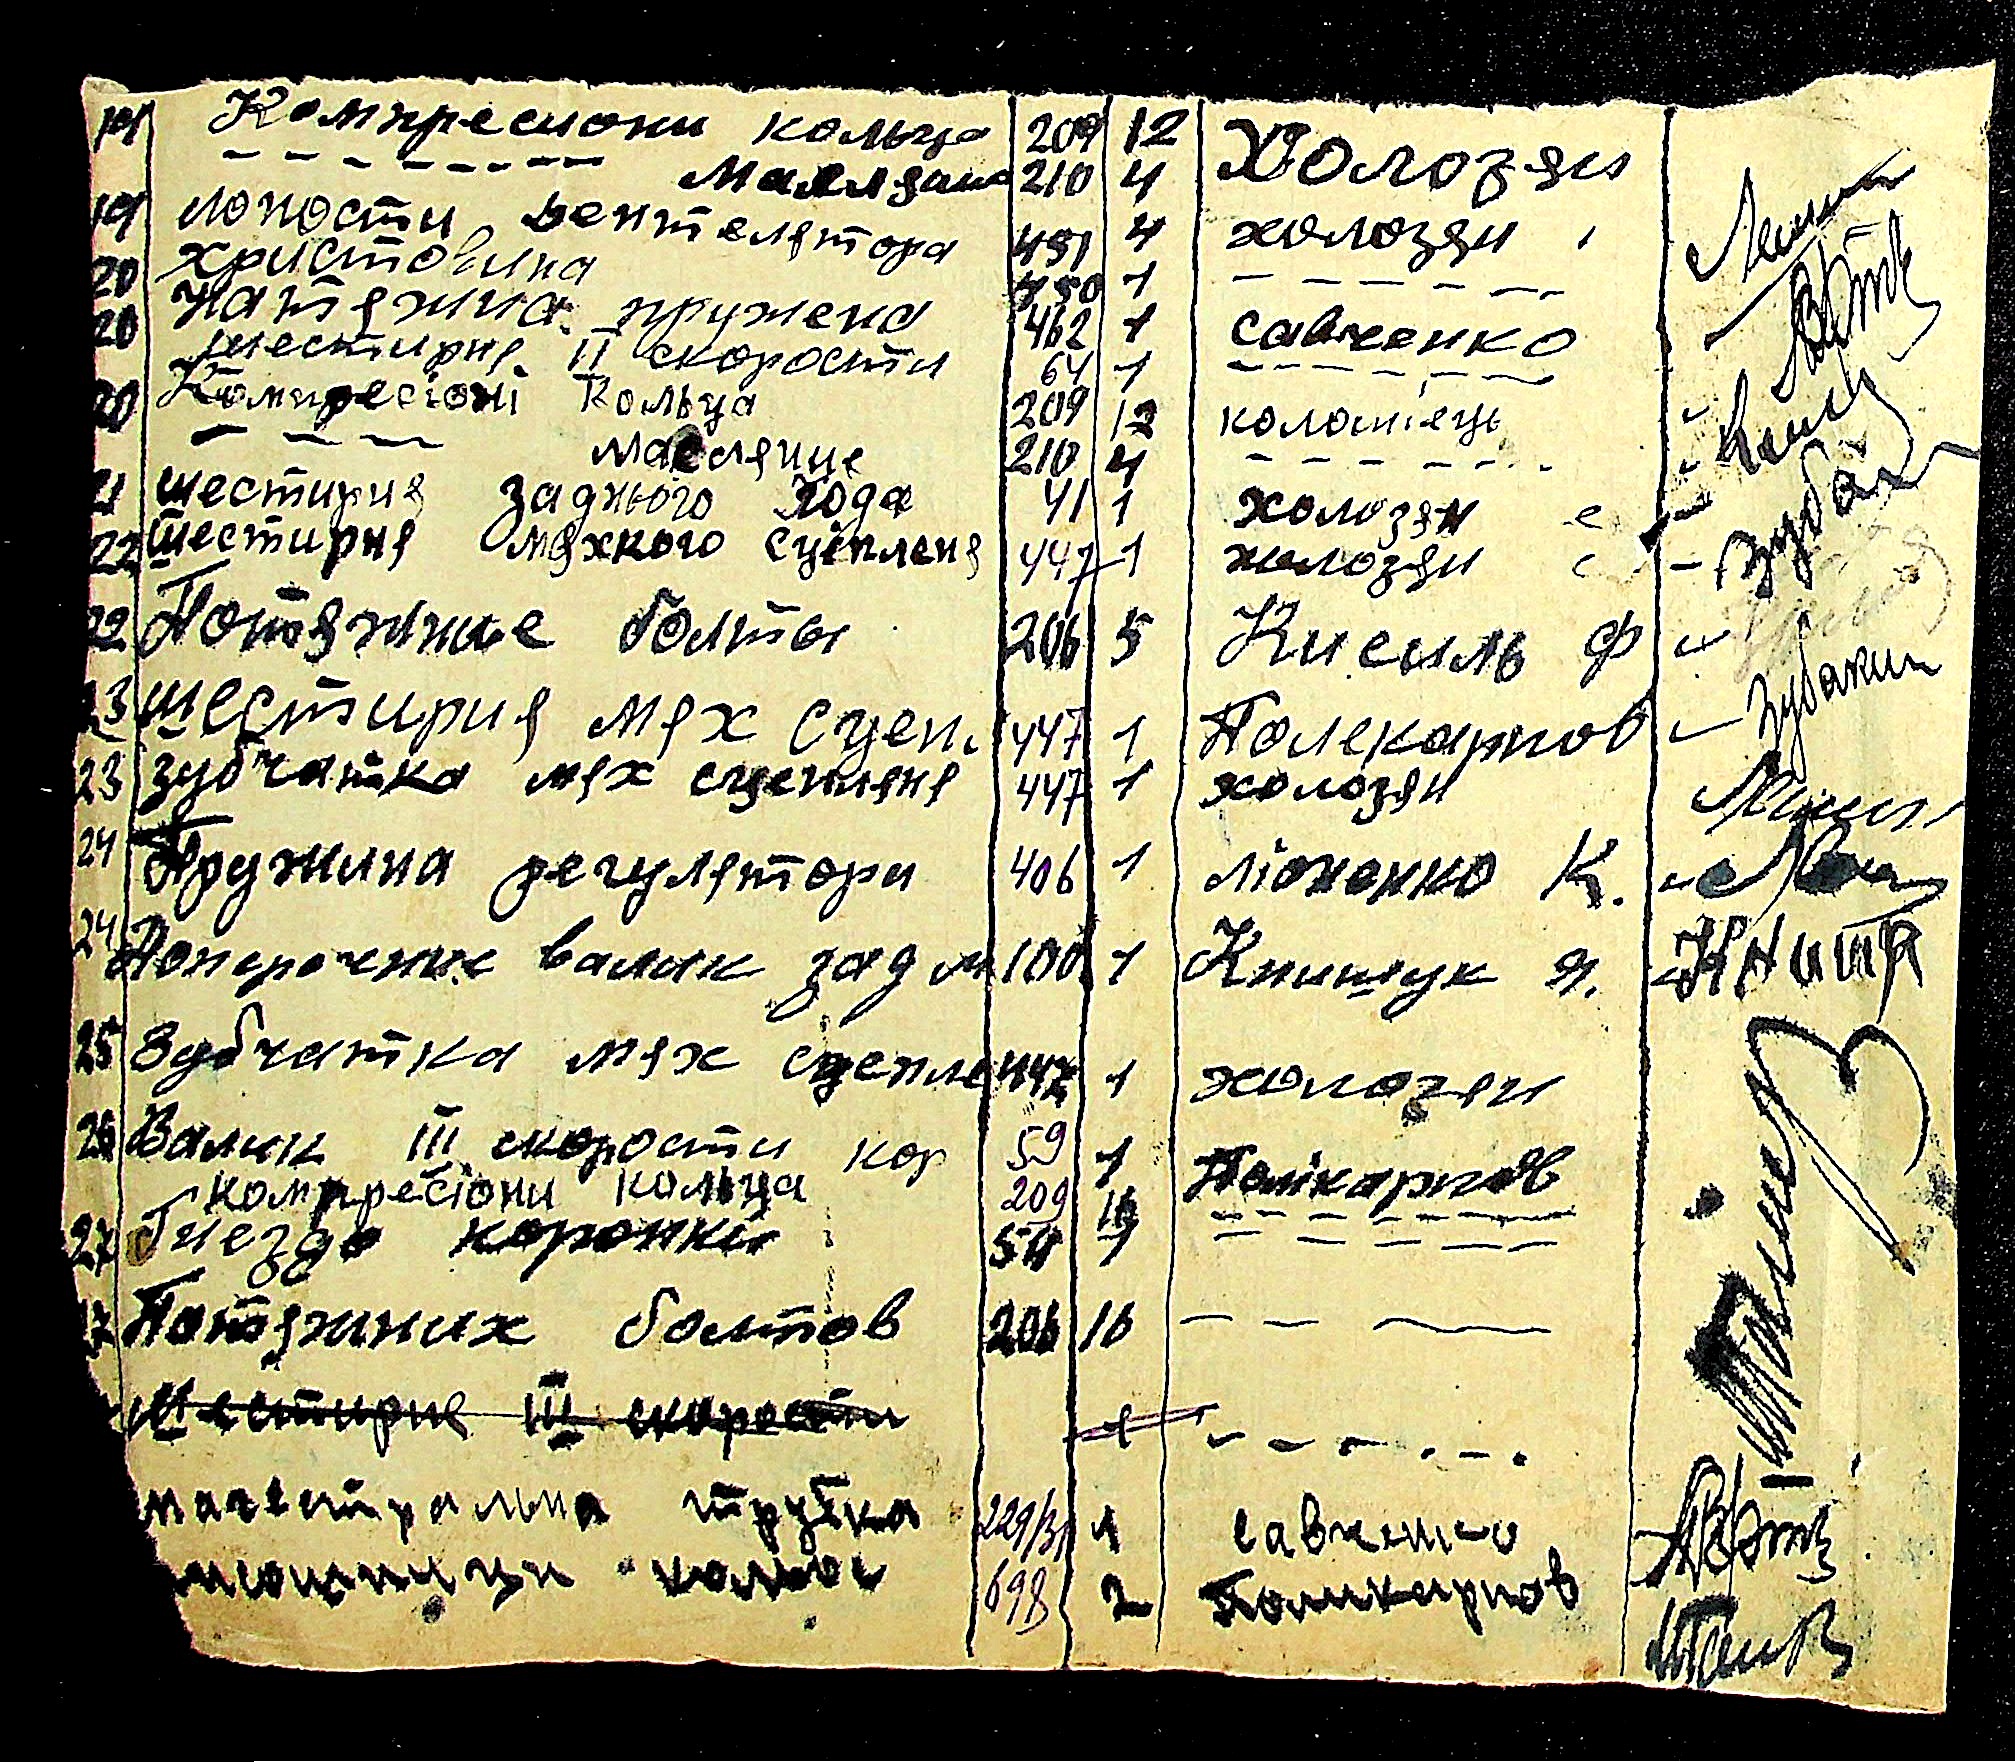 19 Компресиони кольца 209 12 Холозян
- - - - - - - - 210 4
19 лопости вентелятора 451 4 холозян
20 христовина 450 1 - - - - - -
20 натяжна пружена 462 1 савченко
шестирня II скорости 64 1 - - - - - -
20 Компресіоні Кольца 209 12 коломіець
- - - масляние 210 4 - - - - - -
21 шестирня заднього хода 41 1 холозян
22 шестирня мяхкого сцепленя 447 1 холозян
22 Потяжние болты 206 5 Кисиль Ф
23 шестирня мях сцеп. 447 1 Полекарпов Зубакин
23 зубчатка мях сцепленя 447 1 холозян
24 Пружина регулятори 406 1 К.
24 Поперечние валик зад м 100 1 Книшук Я.
25 Зубчатка мях сцепле 447 1 холозян
26 Валик III скорости кор 59 1 Полікарпов
компресіони кольца 209 16 - - - - - -
27 Гнездо коронки 54 1 - - - - -
27 Потяжних болтов 206 16 - - -
Шестирне III скорости 1 - - - - - -
магестральна трубка 229/31 1 савченко
698 2 Поликарпов